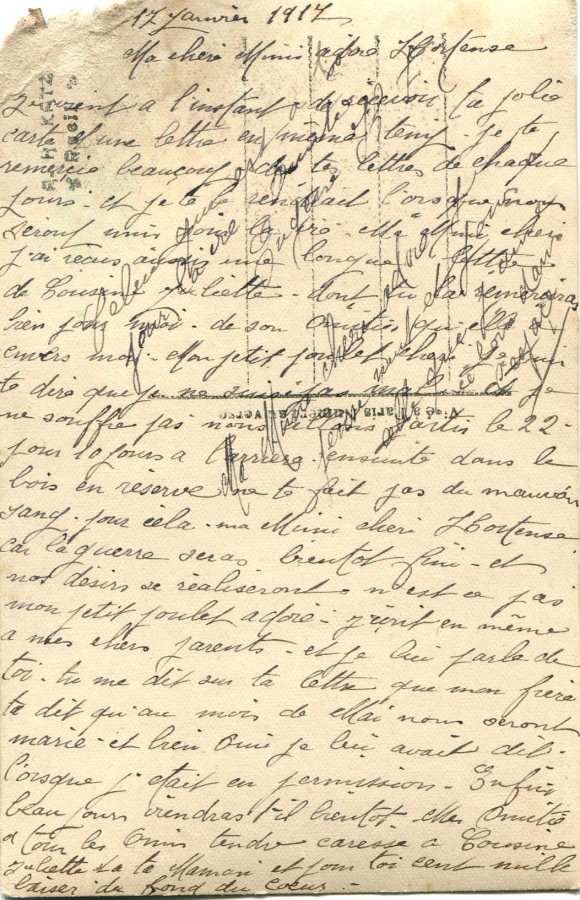 17 Janvier 1917
Ma cheri Mimi adoré Hortense
Je vient a l'instant de recevoir ta jolie
carte d'une lettre en même temp. je te
remercie beaucoup de tes lettres de chaque
jours. et je te le rendrait l'orsque nous
seront unis pour la vie. Ma Mimi cheri
j'ai reçus aussi une longue lettre
de Cousine Juliette. dont tu la remeciras
bien pour moi. de son amitié qu'elle
envers moi. Mon petit poulet cheri je
te dire que je ne suis pas malade et je
ne souffre pas nous allons partis le 22
pour 10 jours a l'arriere ensuite dans le
bois en réserve ne te fait pas du mauvais
sang. pour cela. ma Mimi cheri Hortense
car la guerre seras bientot fini. et
nos désirs se réaliseront. n'est ce pas
mon petit poulet adoré. j'écrit en même
a mes chers parents. et je lui parle de
toi. tu me dit sur ta lettre que mon frère
te dit qu'au mois de Mai nous seront
marié. et bien Oui je lui avait dit.
l'orsque j'etait en permission. Enfin
beau jours viendras t'il bientot. Mes Amitié
a tour les amis tendre caresse a Cousine
Juliette a ta Maman et pour toi cent mille
baiser du fond du coeur.
Ma Mimi cheri adoré
pour la vie
Visé à Paris Numéro au verso